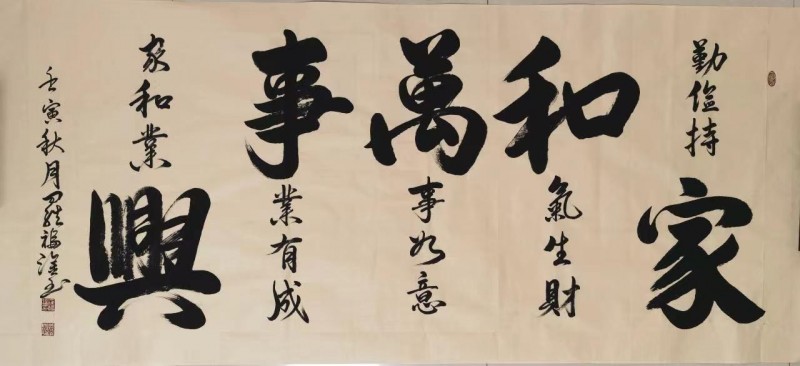 勤俭持家
和氣生財
萬事如意
事業有成
家和業興
壬寅秋月羅福淦书